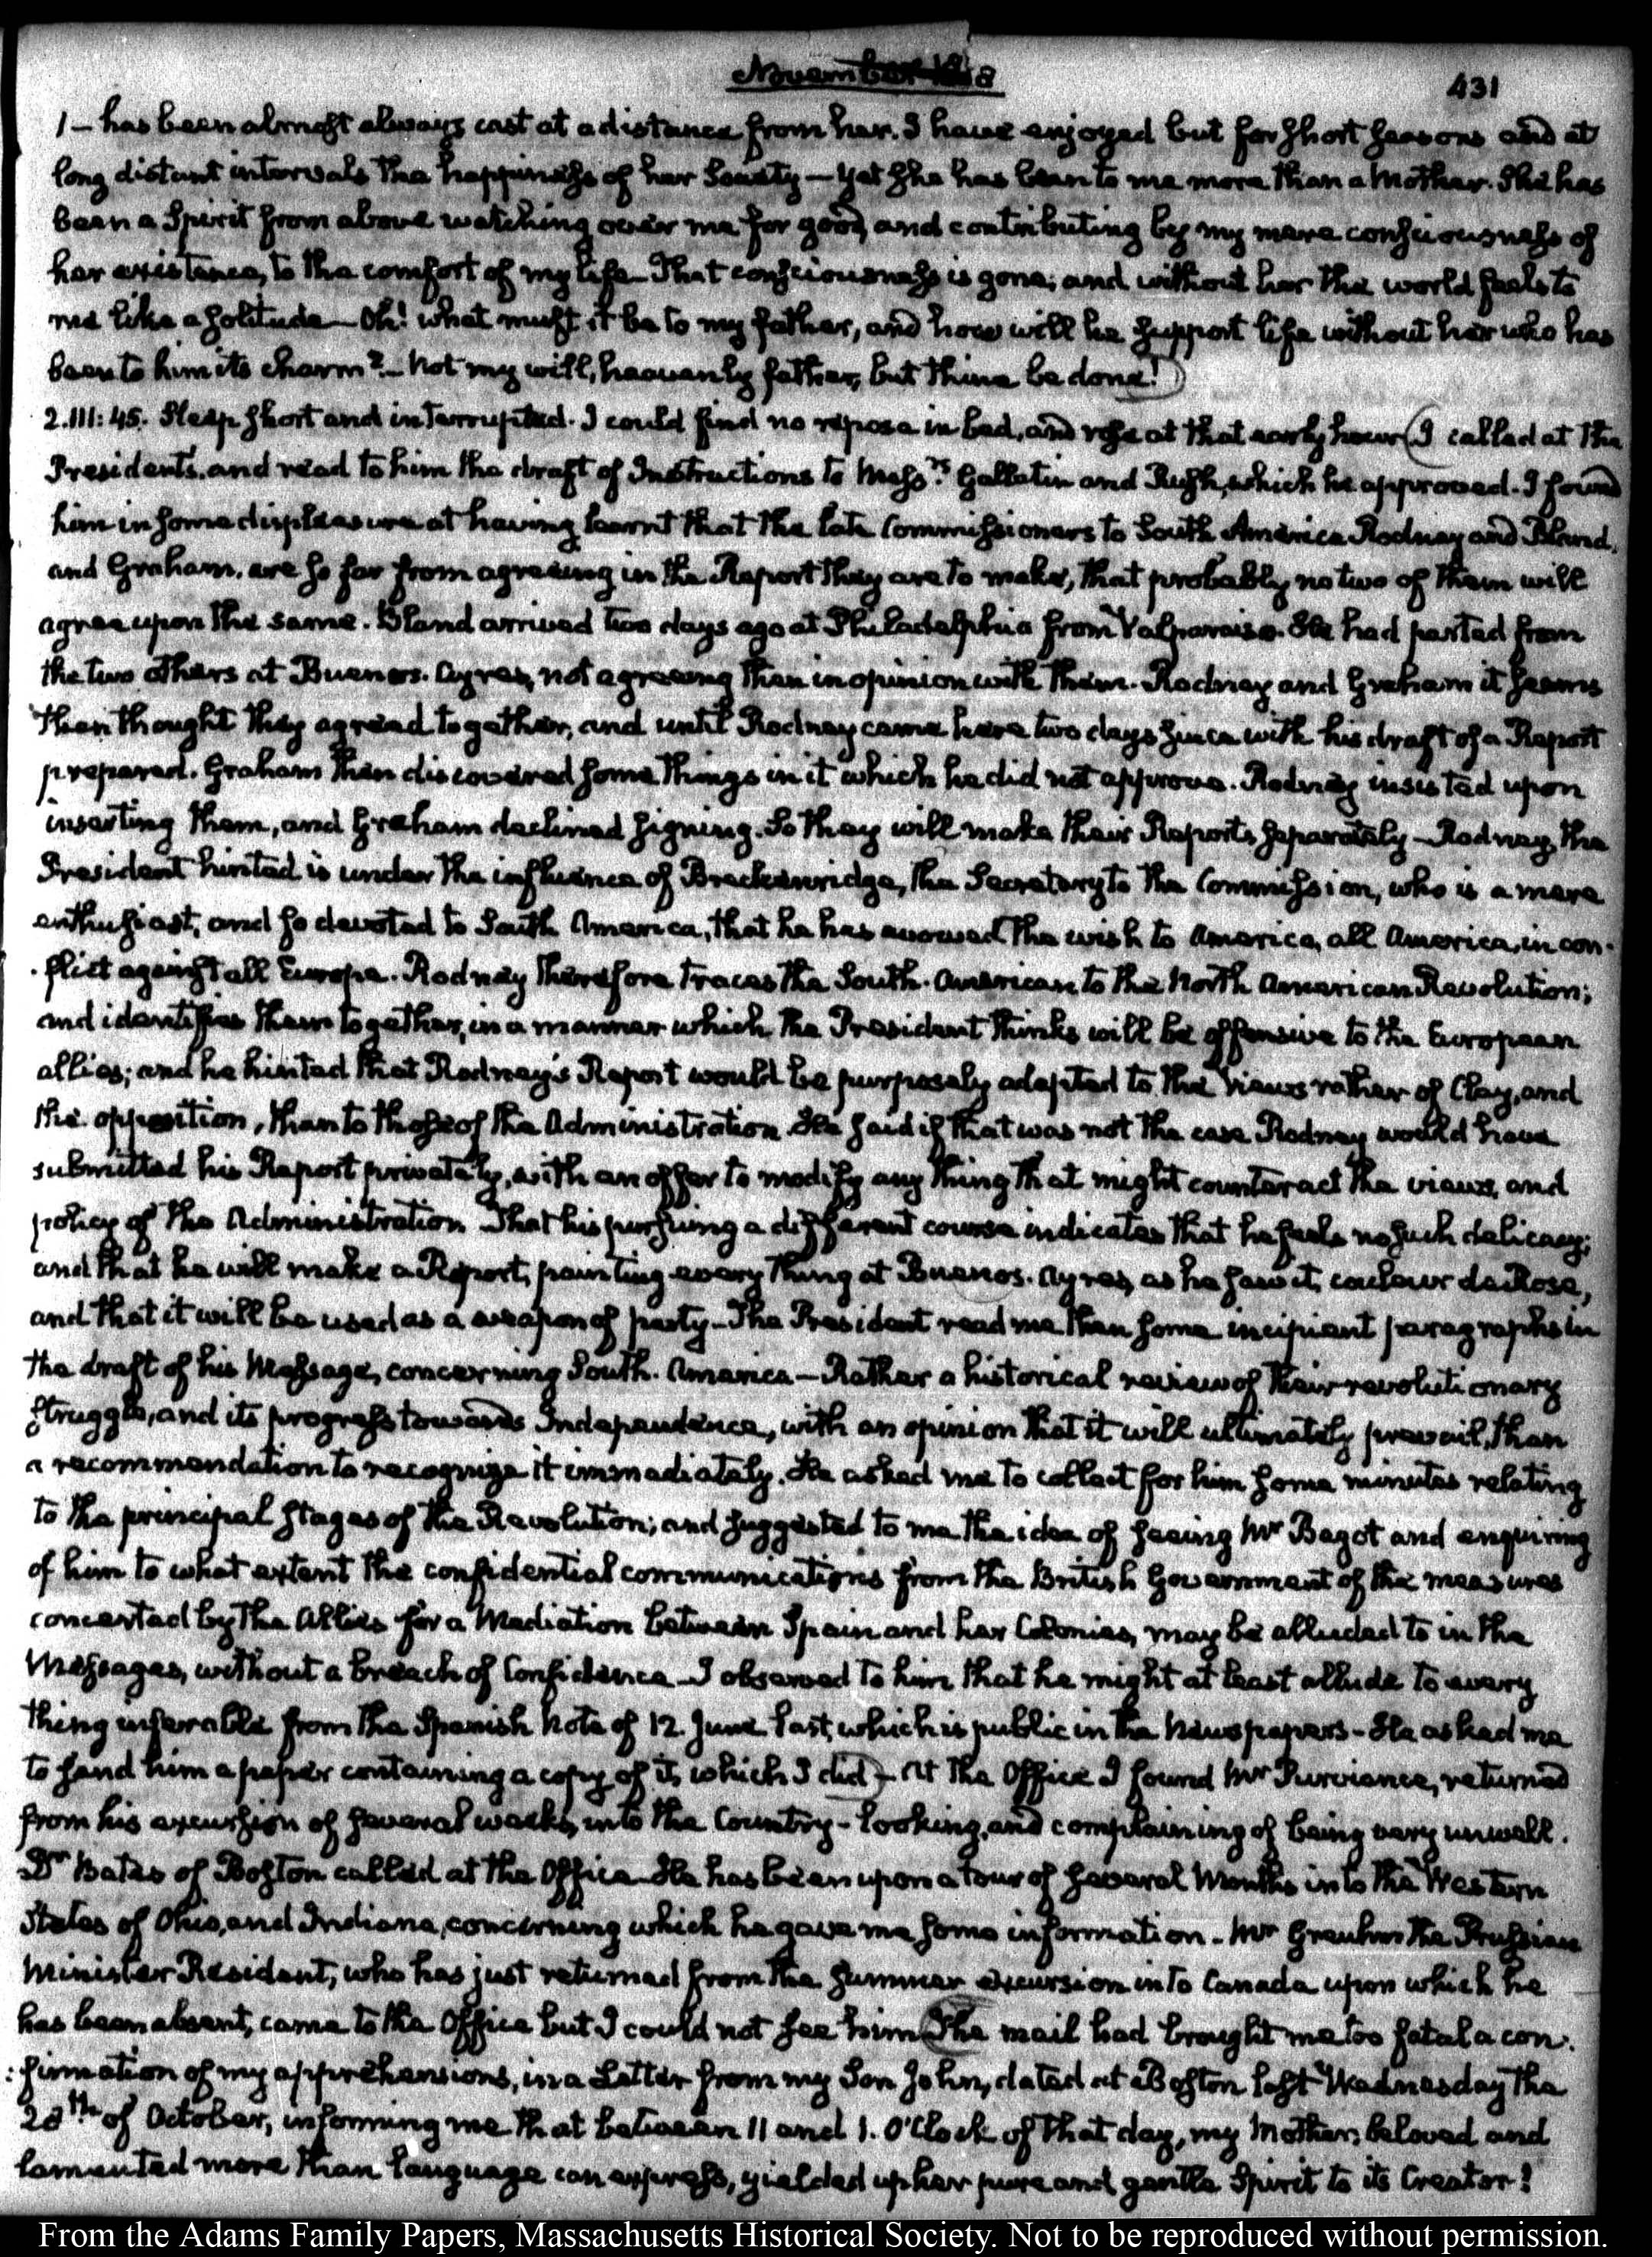 November 1818
431
1 – has been almost always cast at a distance from her. I have enjoyed but for short seasons and at
long distant intervals the happiness of her Society — yet she has been to me more than a Mother. She has
been a Spirit from above watching over me for good, and contributing by my mere consciousness of
her existence, to the comfort of my life — That consciousness is gone; and without her the world feels to
me like a solitude — Oh! what must it be to my father, and how will he support life without her who has
been to him its charm? — Not my will, heavenly father, but thine be done!)
2. III: 45. Sleep short and interrupted. I could find no repose in bed, and rose at that early hour (I called at the
President's, and read to him the draft of Instructions to Mess.rs Gallatin and Rush, which he approved. I found
him in some displeasure at having learnt that the late Commissioners to South America Rodney and Bland,
and Graham, are so far from agreeing in the Report they are to make, that probably no two of them will
agree upon the same. Bland arrived two days ago at Philadelphia from Valparaiso. He had parted from
the two others at Buenos-Ayres, not agreeing then in opinion with them. Rodney and Graham it seems
then thought they agreed together, and until Rodney came here two days since with his draft of a Report
prepared. Graham then discovered some things in it which he did not approve. Rodney insisted upon
inserting them, and Graham declined signing. So they will make their Reports separately — Rodney, the
President hinted is under the influence of Breckenridge, the Secretary to the Commission, who is a mere
enthusiast, and so devoted to South America, that he has avowed the wish to America, all America, in con-
-flict against all Europe. Rodney therefore traces the South-American to the North American Revolution;
and identifies them together, in a manner which the President thinks will be offensive to the European
allies; and he hinted that Rodney's Report would be purposely adapted to the views rather of Clay, and
the opposition, than to those of the Administration. He said if that was not the case Rodney would have
submitted his Report privately, with an offer to modify any thing that might counteract the views, and
policy of the Administration. That his pursuing a different course indicates that he feels no such delicacy;
and that he will make a Report, painting every thing at Buenos-Ayres, as he saw it, couleur de Rose,
and that it will be used as a weapon of party — The President read me then some incipient paragraphs in
the draft of his Message, concerning South-America — Rather a historical review of their revolutionary
struggle, and its progress towards Independence, with an opinion that it will ultimately prevail, than
a recommendation to recognize it immediately. He asked me to collect for him some minutes relating
to the principal stages of the Revolution; and suggested to me the idea of seeing Mr Bagot and enquiring
of him to what extent the confidential communications from the British Government of the measures
concerted by the Allies for a Mediation between Spain and her Colonies, may be alluded to in the
Messages, without a breach of Confidence — I observed to him that he might at least allude to every
thing inferable from the Spanish Note of 12. June last, which is public in the Newspapers — He asked me
to send him a paper containing a copy of it, which I did) — At the Office I found Mr Purviance, returned
from his excursion of several weeks, into the Country — looking, and complaining of being very unwell.
Dr Bates of Boston called at the Office — He has been upon a tour of several Months into the Western
States of Ohio, and Indiana, concerning which he gave me some information — Mr Greuhm the Prussian
Minister Resident, who has just returned from the summer excursion into Canada upon which he
has been absent, came to the Office but I could not see him (The mail had brought me too fatal a con-
:firmation of my apprehensions, in a Letter from my Son John, dated at Boston last Wednesday the
28th of October, informing me that between 11 and 1. O'Clock of that day, my Mother, beloved and
lamented more than language can express, yielded up her pure and gentle Spirit to its Creator!
From the Adams Family Papers, Massachusetts Historical Society. Not to be reproduced without permission.